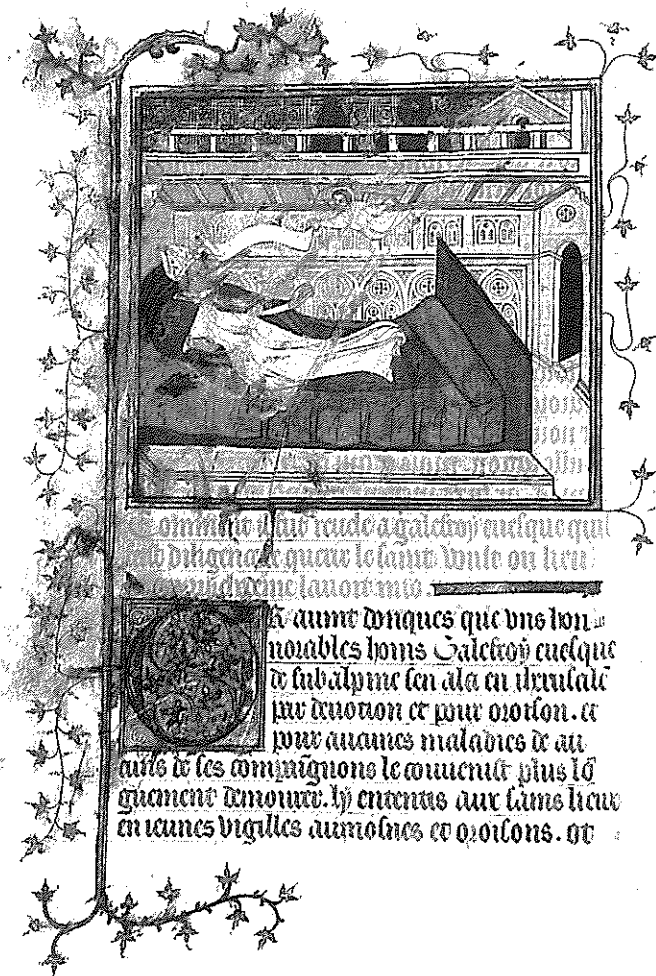 Comment il fut reuele a galefroy euesque quil
diligence querir le saint voult ou lieu
lauoit mis.
OR auint donques que vns hon
norables homs Galefroy euesque
de subalpine sen ala en iherusalē
par deuotion et pour oroison. et
pour aucunes maladies de au
cuns de ses compaignons le conuenist plus lō
guement demourer. ly ententis aux sains lieux
en ieunes vigilles aumosnes et oroisons. et